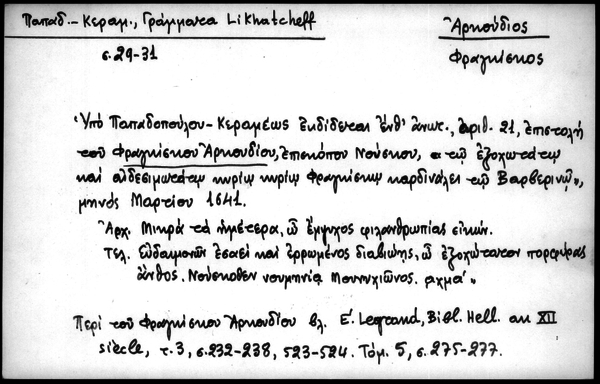 Παπαδ.-Κεραμ., Γράμματα Likhatcheff
Ἀρκούδιος
σ. 29-31
Φραγκίσκος
Ὑπὸ Παπαδοπούλου-Κεραμέως ἐκδίδεται ἔνθ' ἀνωτ., ἀριθ. 21, ἐπιστολὴ
τοῦ Φραγκίσκου Ἀρκουδίου, ἐπισκόπου Νούσκου, « τῷ ἐξοχωτάτῳ
καὶ αἰδεσιμωτάτῳ κυρίῳ κυρίῳ Φραγκίσκῳ καρδινάλει τῷ Βαρβερινῷ»,
μηνὸς Μαρτίου 1641.
Ἀρχ. Μικρὰ τὰ ἡμέτερα, ὦ ἔμψυχος φιλανθρωπίας εἰκών.
Τελ. Εὐδαιμονῶν ἐσαεὶ καὶ ἐρρωμένος διαβιῴης, ὦ ἐξοχώτατον πορφύρας
ἄνθος. Νούσκοθεν νουμηνίᾳ Μουνυχιῶνος. αχμα' »
Περὶ τοῦ Φραγκίσκου Ἀρκουδίου βλ. E. Legrand, Bibl. Hell. au XII
siècle, τ. 3, σ. 232-238, 523-524. Τόμ. 5, σ. 275-277.